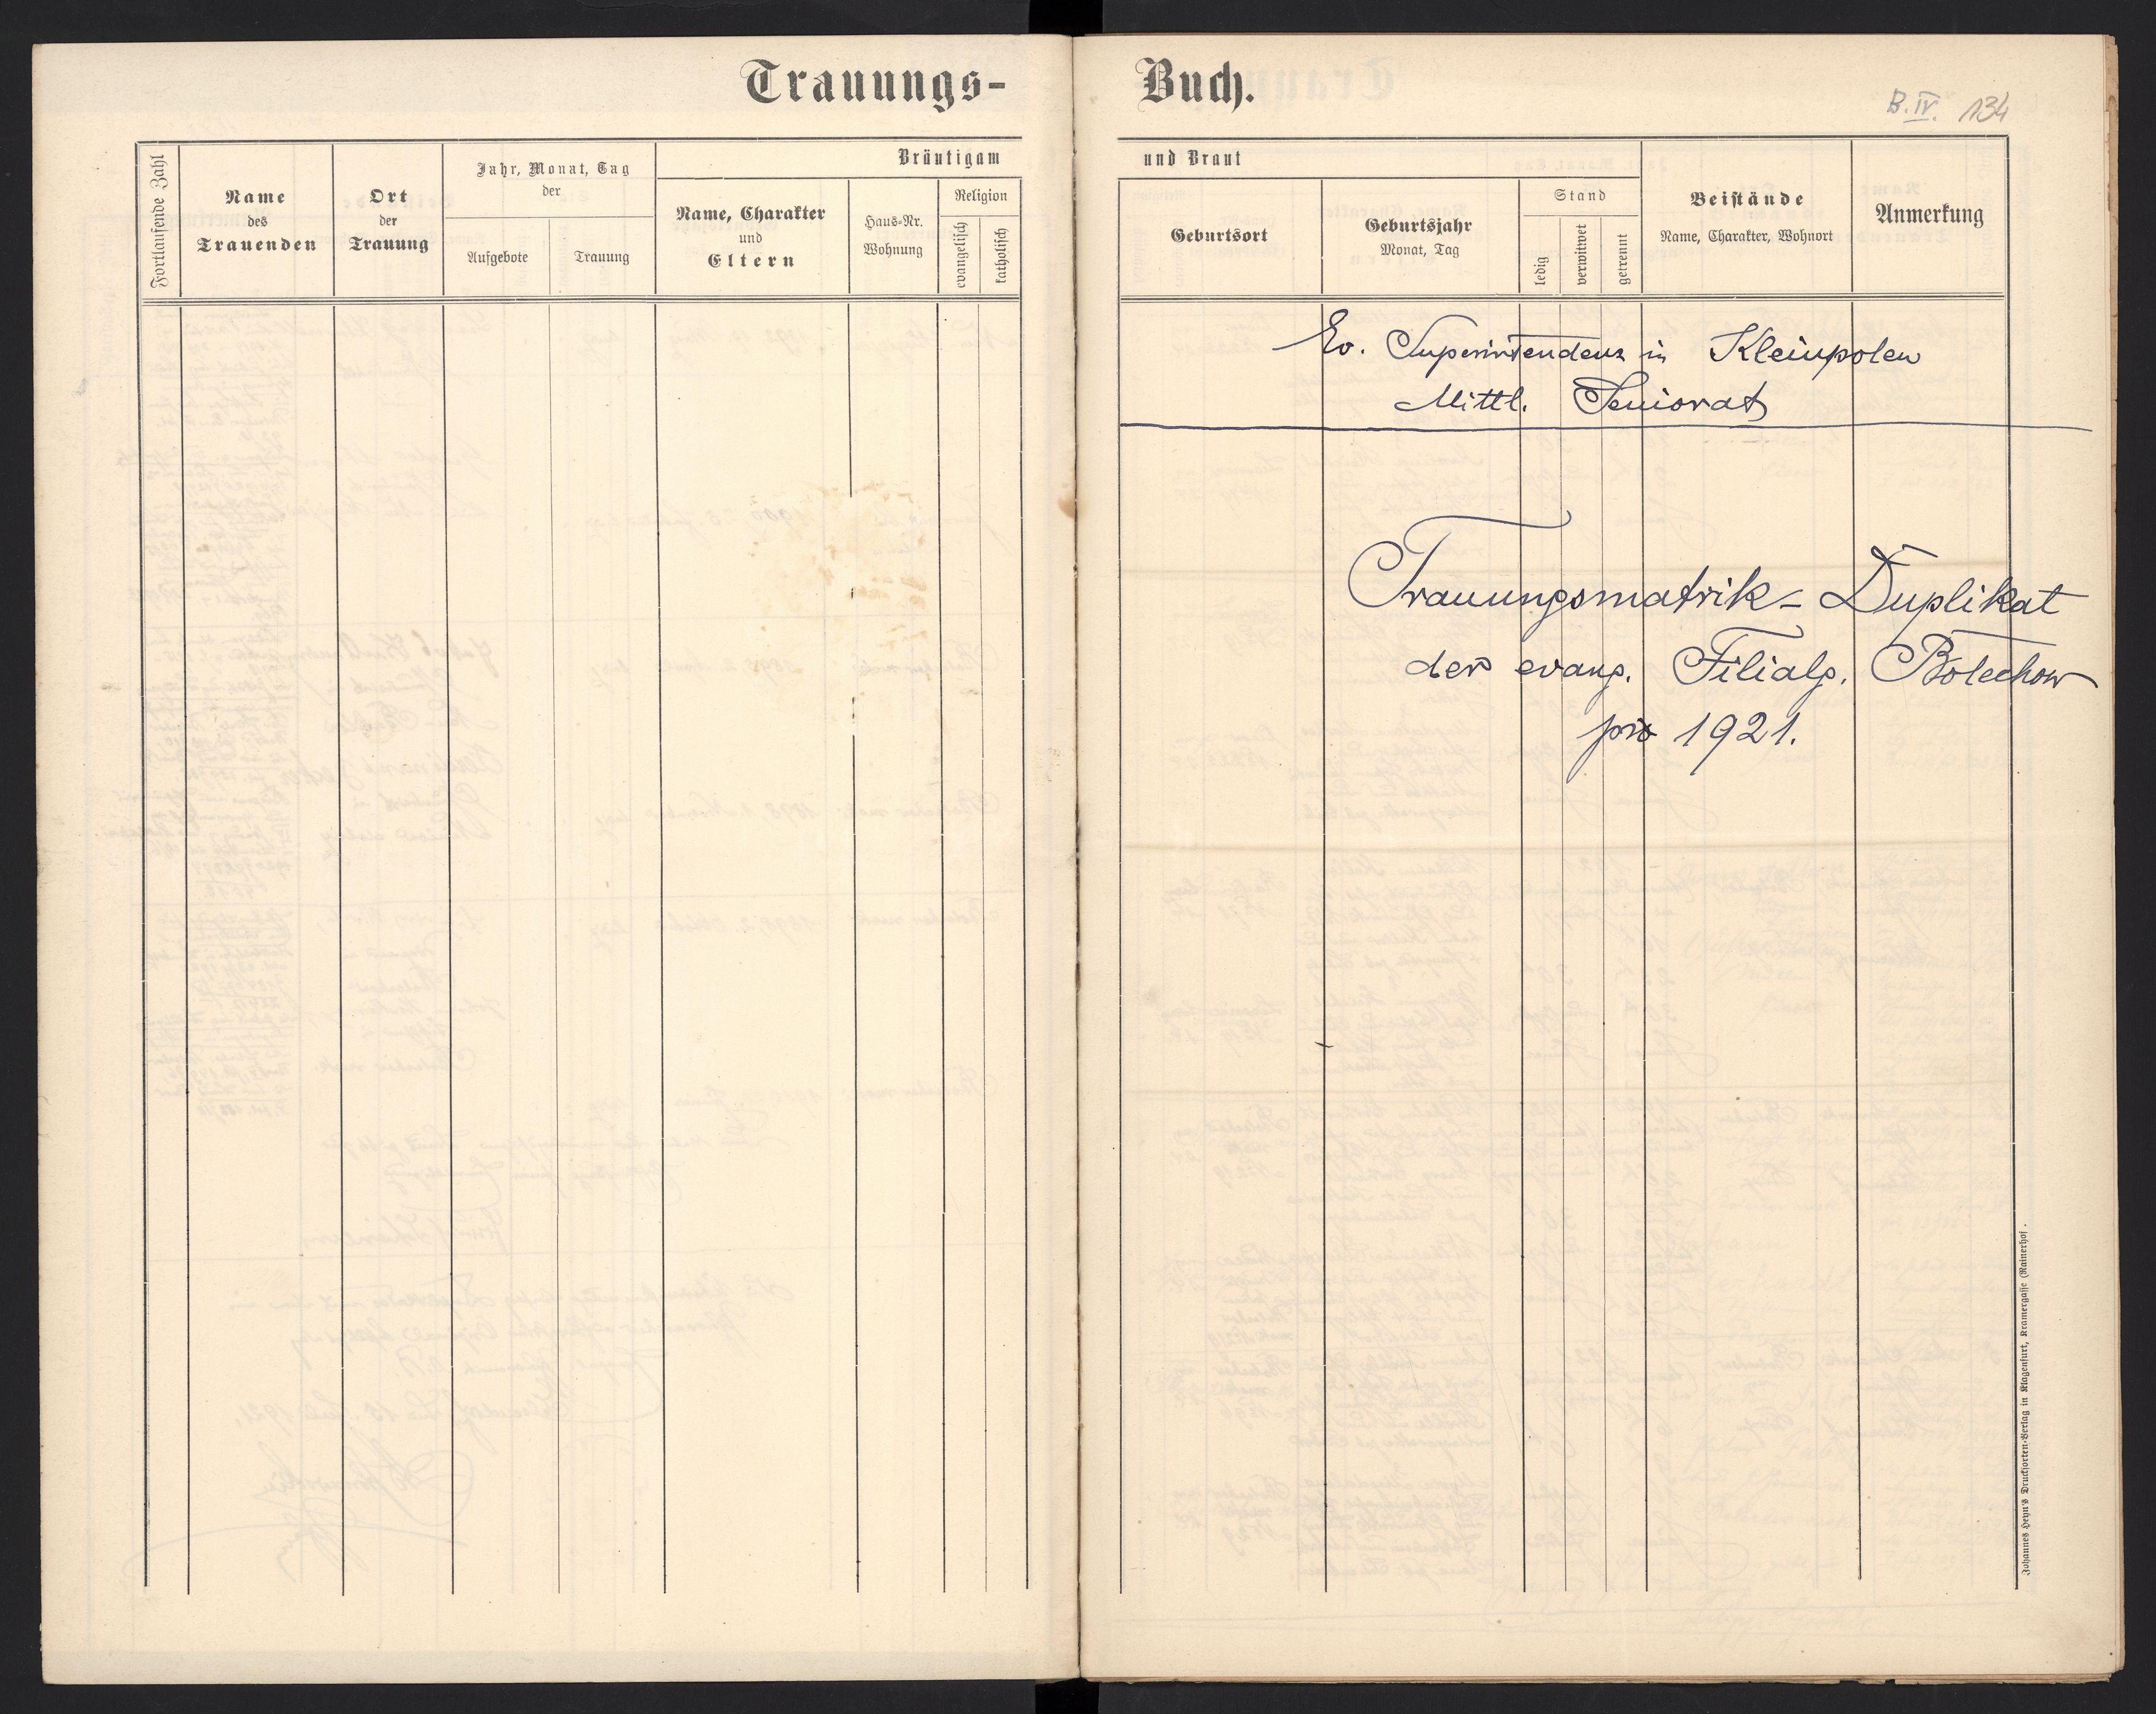 Trauungs-
Buch.
B. IV. 134
Fortlaufende Zahl
Name
des
Trauenden
Ort
der
Trauung
Jahr, Monat, Tag
der
Aufgebote
Trauung
Bräutigam
Name, Charakter
und
Eltern
Haus-Nr.
Wohnung
Religion
evangelisch
katholisch
und Braut
Geburtsort
Geburtsjahr
Monat, Tag
Stand
ledig
verwitwet
getrennt
Beistände
Name, Charakter, Wohnort
Anmerkung
Ev. Superintendenz in Kleinpolen
Mittl. Seniorat
Trauungsmatrik-Duplikat
der evang. Filialg. Bolechow
pro 1921.
Johannes Heyn's Drucksorten-Verlag in Klagenfurt, Kramergasse (Rainerhof.